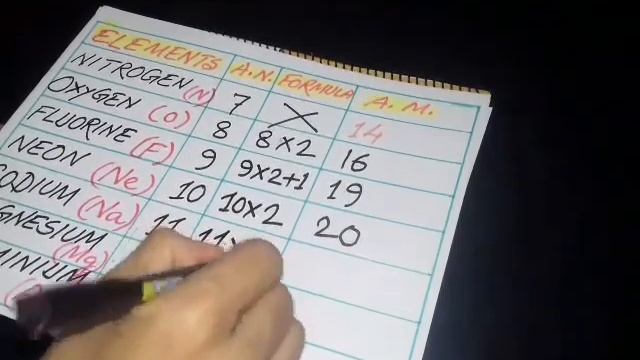 ELEMENTS A.N. FORMULA A.M.
NITROGEN (N) 7 X 14
OXYGEN (O) 8 8×2 16
FLUORINE (F) 9 9×2+1 19
NEON (Ne) 10 10×2 20
SODIUM (Na) 11 11×
GNESIUM (Mg)
MINIUM